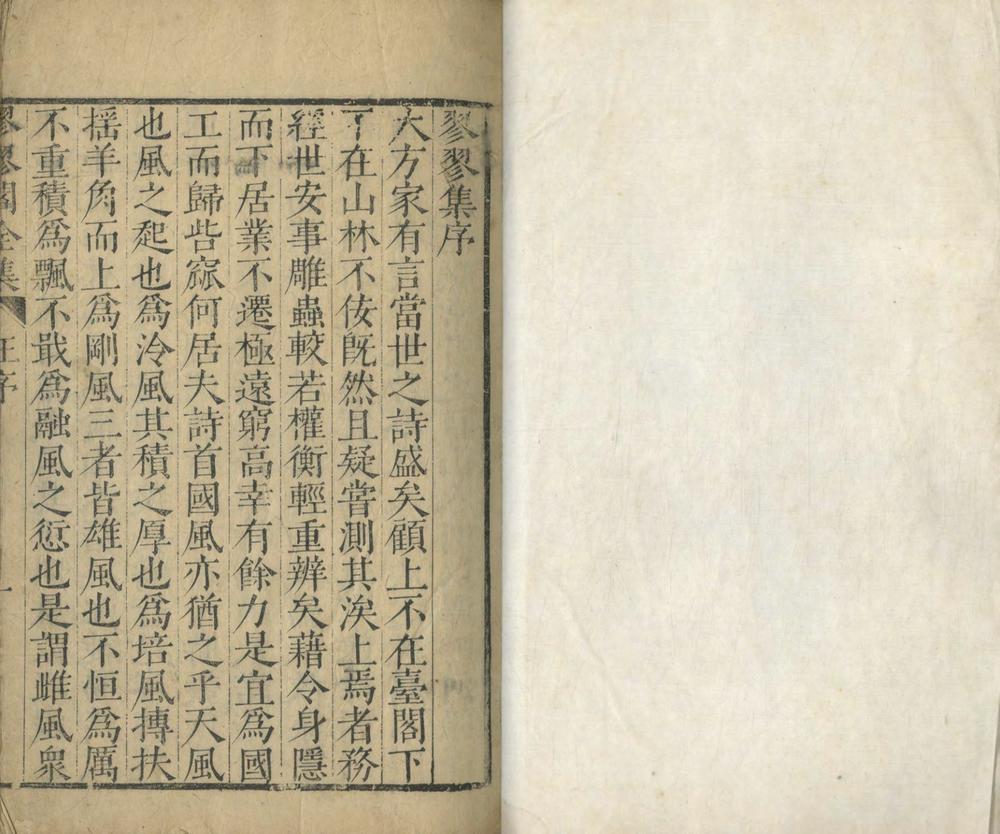 翏翏集序
大方家有言當世之詩盛矣顧上不在臺閣下
了在山林不佞旣然且疑嘗測其涘上焉者務
經世安事雕蟲較若權衡輕重辨矣藉令身隱
而下居業不遷極遠窮高幸有餘力是宜爲國
工而歸呰窳何居夫詩首國風亦猶之乎天風
也風之起也爲泠風其積之厚也爲培風摶扶
揺羊角而上爲剛風三者皆雄風也不恒爲厲
不重積爲飄不戢爲融風之愆也是謂雌風衆
翏翏閣全集 汪序 一